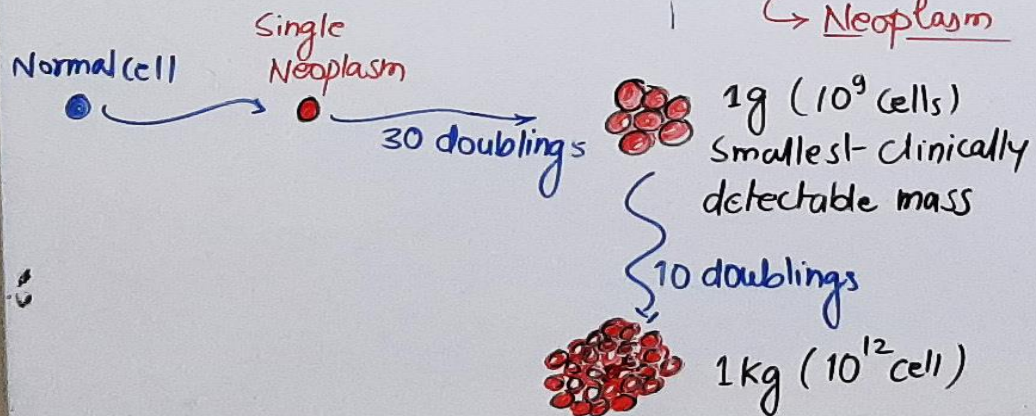 ↳ Neoplasm
Single
Neoplasm
Normal cell
30 doublings
1g (10⁹ cells)
Smallest clinically
detectable mass
10 doublings
1Kg (10¹² cell)